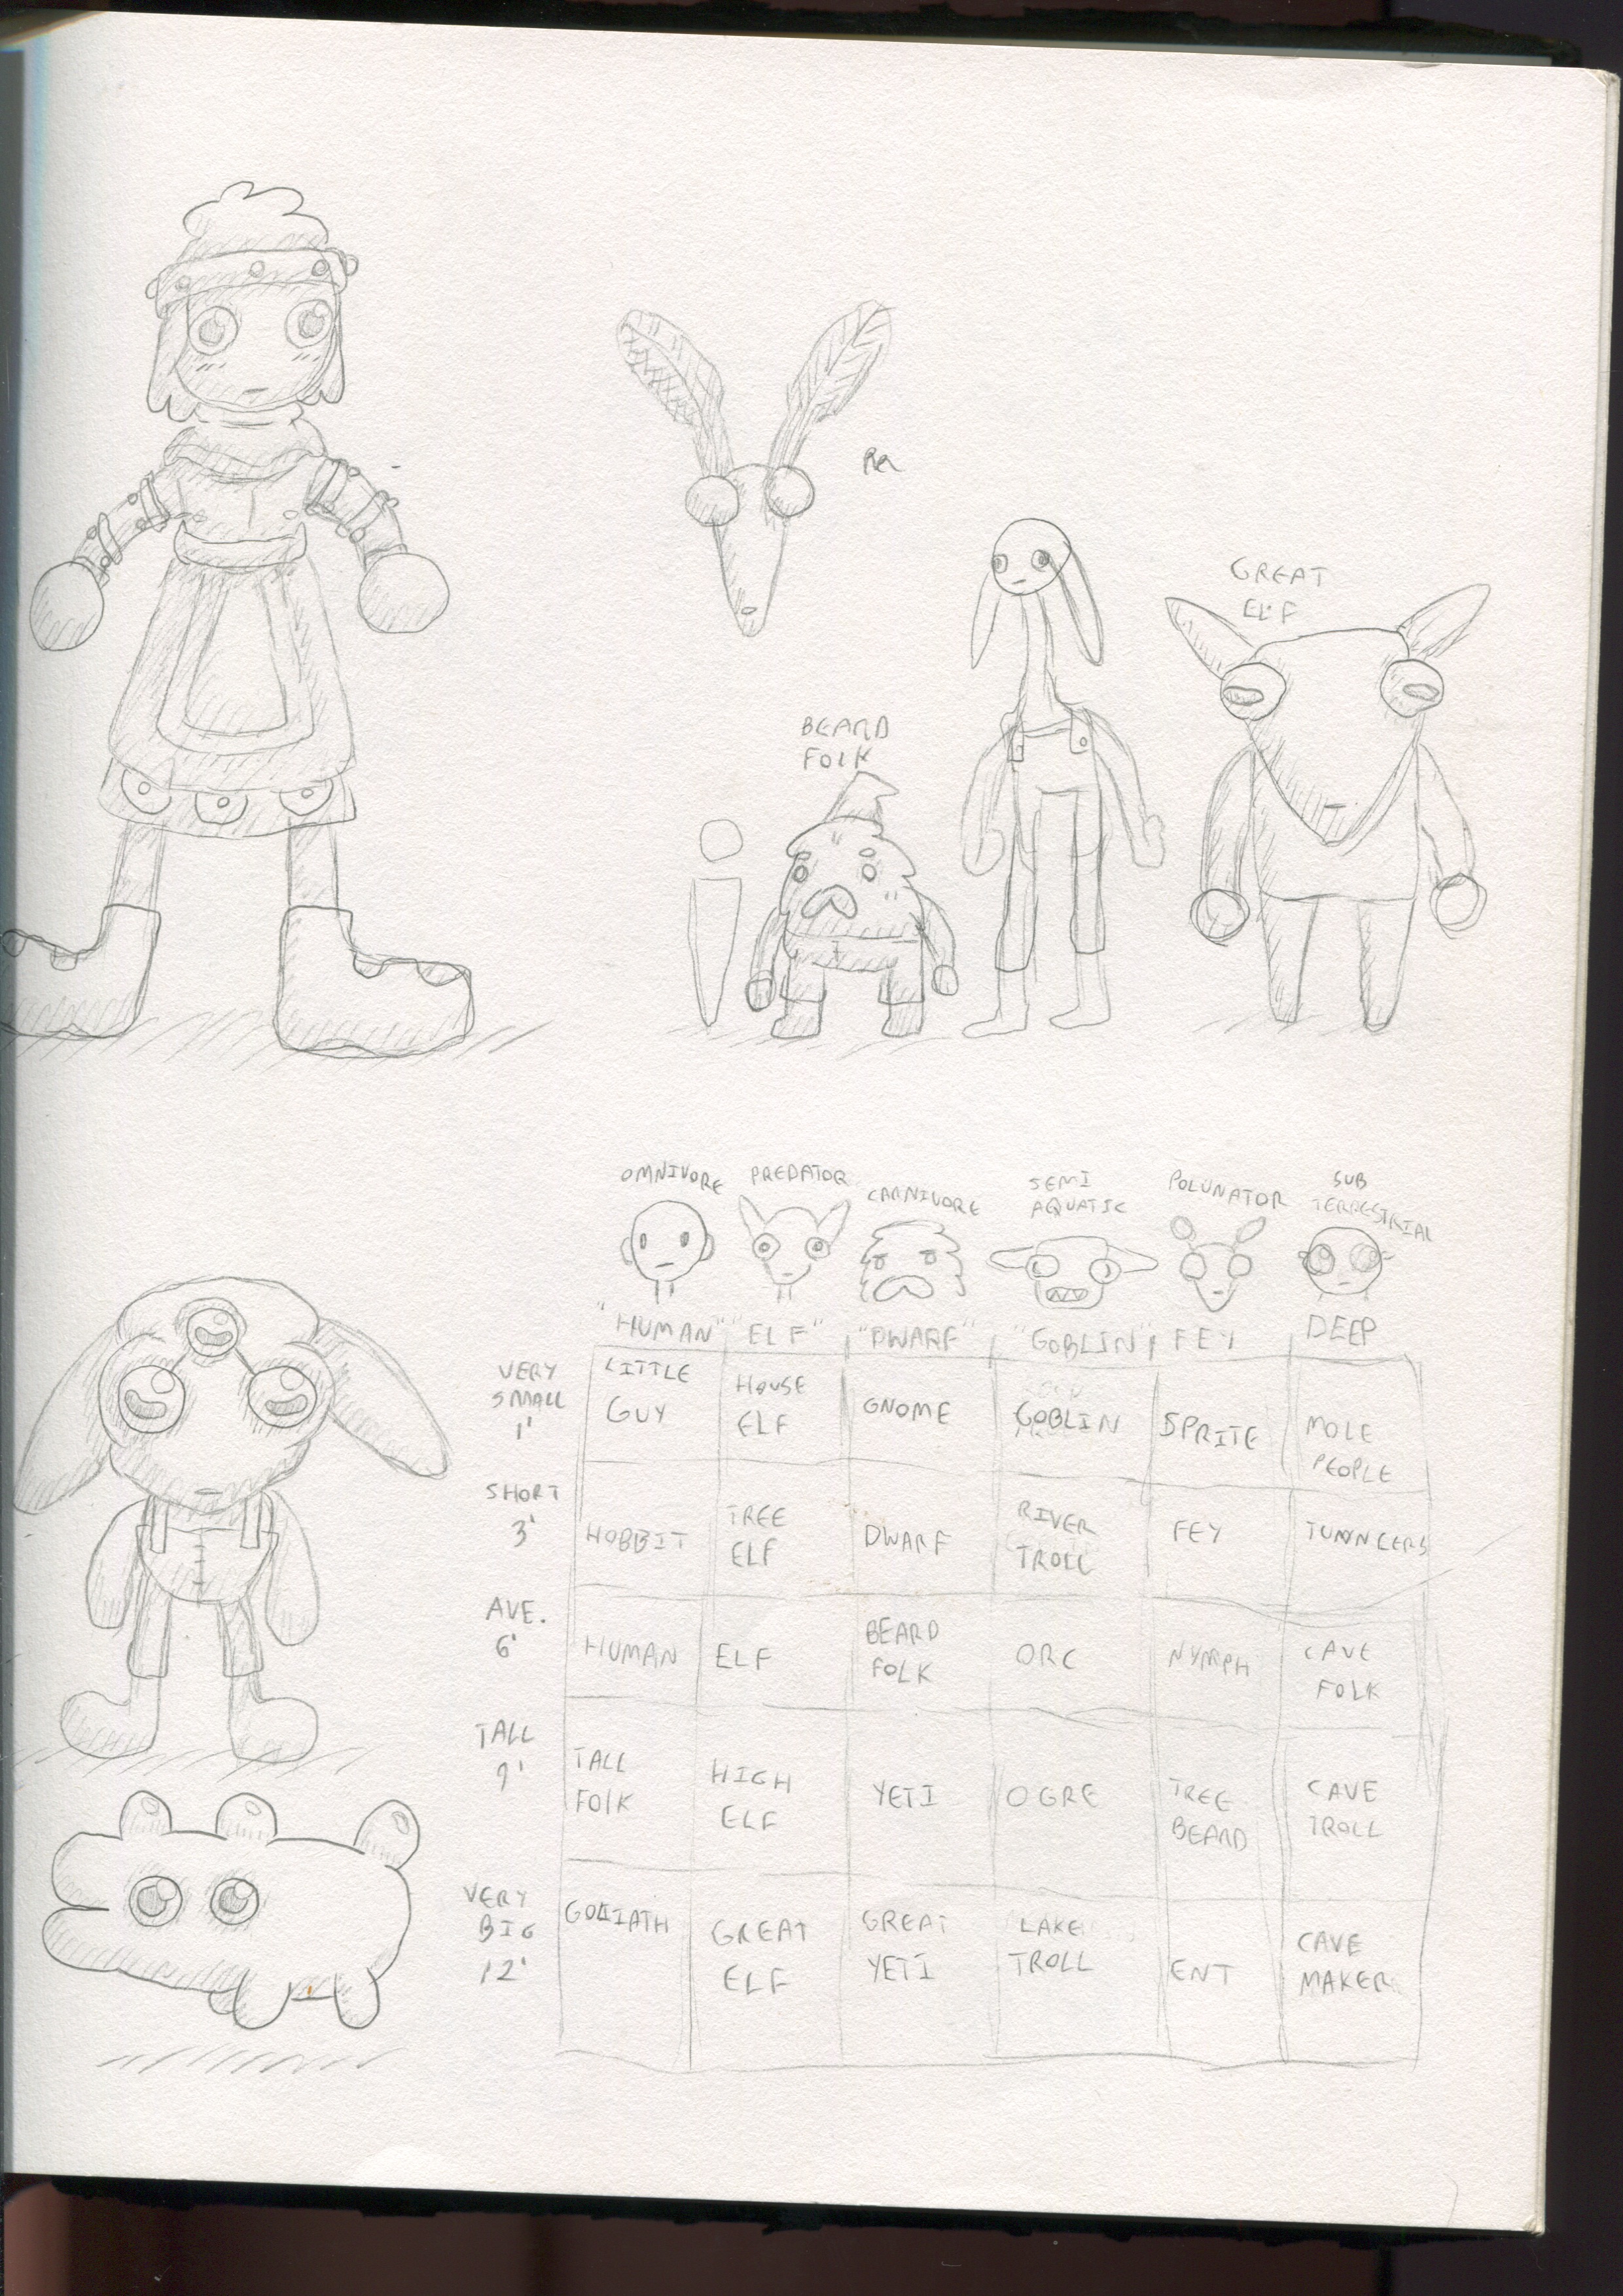 GREAT
ELF
BEARD
FOLK
OMNIVORE PREDATOR CARNIVORE SEMI AQUATIC POLUNATOR SUB TERRESTRIAL
"HUMAN" "ELF" "DWARF" "GOBLIN" FEY DEEP
VERY
SMALL
1'
LITTLE
GUY
HOUSE
ELF
GNOME
GOBLIN
SPRITE
MOLE
PEOPLE
SHORT
3'
HOBBIT
TREE
ELF
DWARF
RIVER
TROLL
FEY
TUNNLERS
AVE.
6'
HUMAN
ELF
BEARD
FOLK
ORC
NYMPH
CAVE
FOLK
TALL
9'
TALL
FOLK
HIGH
ELF
YETI
OGRE
TREE
BEARD
CAVE
TROLL
VERY
BIG
12'
GOLIATH
GREAT
ELF
GREAT
YETI
LAKE
TROLL
ENT
CAVE
MAKER